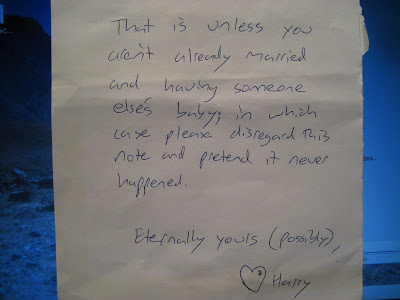 That is unless you
aren't already married
and having someone
else's baby; in which
case please disregard this
note and pretend it never
happened.
Eternally yours (possibly),
Harry